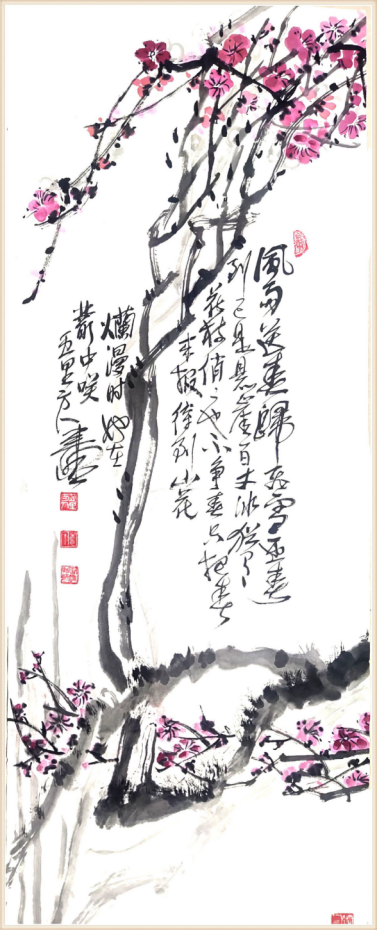 風雨送春歸飛雪迎春
到已是懸崖百丈冰猶有
花枝俏俏也不争春只把春
来報待到山花
爛漫時她在
叢中咲